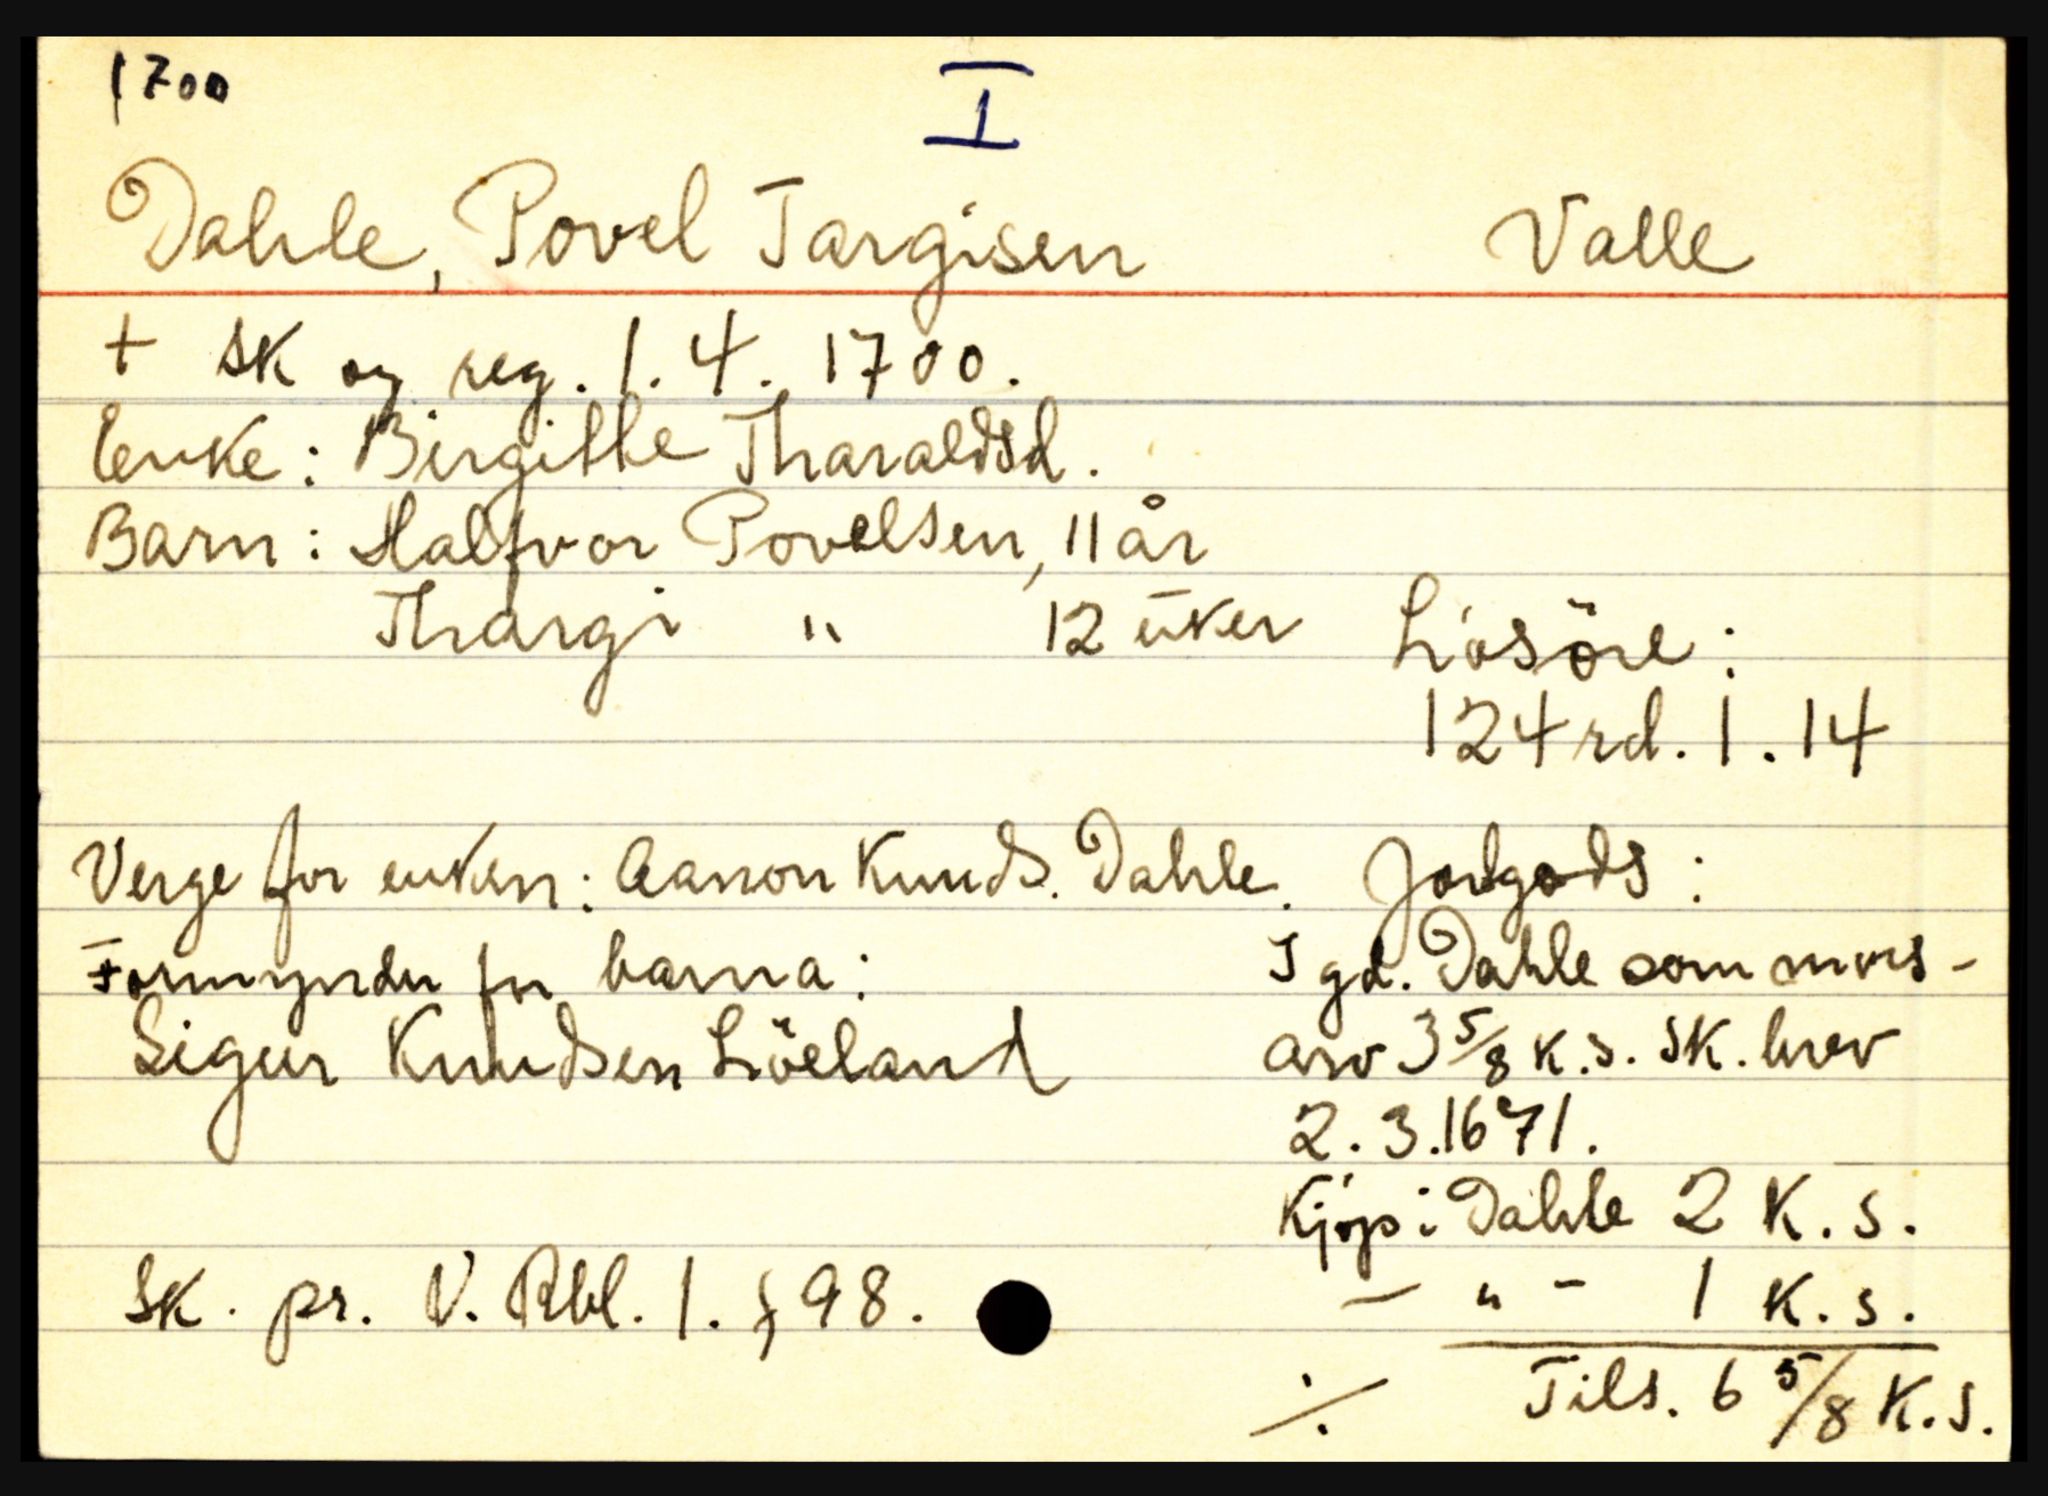 1700
I
Dahle, Povel Targisen Valle
+ Sk og reg. 1. 4. 1700.
Enke: Birgitte Tharaldsd.
Barn: Halfvor Povelsen, 11 år
Thargi " 12 uker
Lösöre:
124 rd. 1. 14
Verge for enken: Aanon Knuds. Dahle.
Formynder for barna:
Sigur Knudsen Löeland
Jordgods:
I gd. Dahle som mors-
arv 3 5/8 K.S. Sk. brev
2. 3. 1671.
Kjöp i Dahle 2 K. S.
– " – 1 K. S.
Tils. 6 5/8 K.S.
Sk. pr. N. Rbl. 1. § 98.
./.